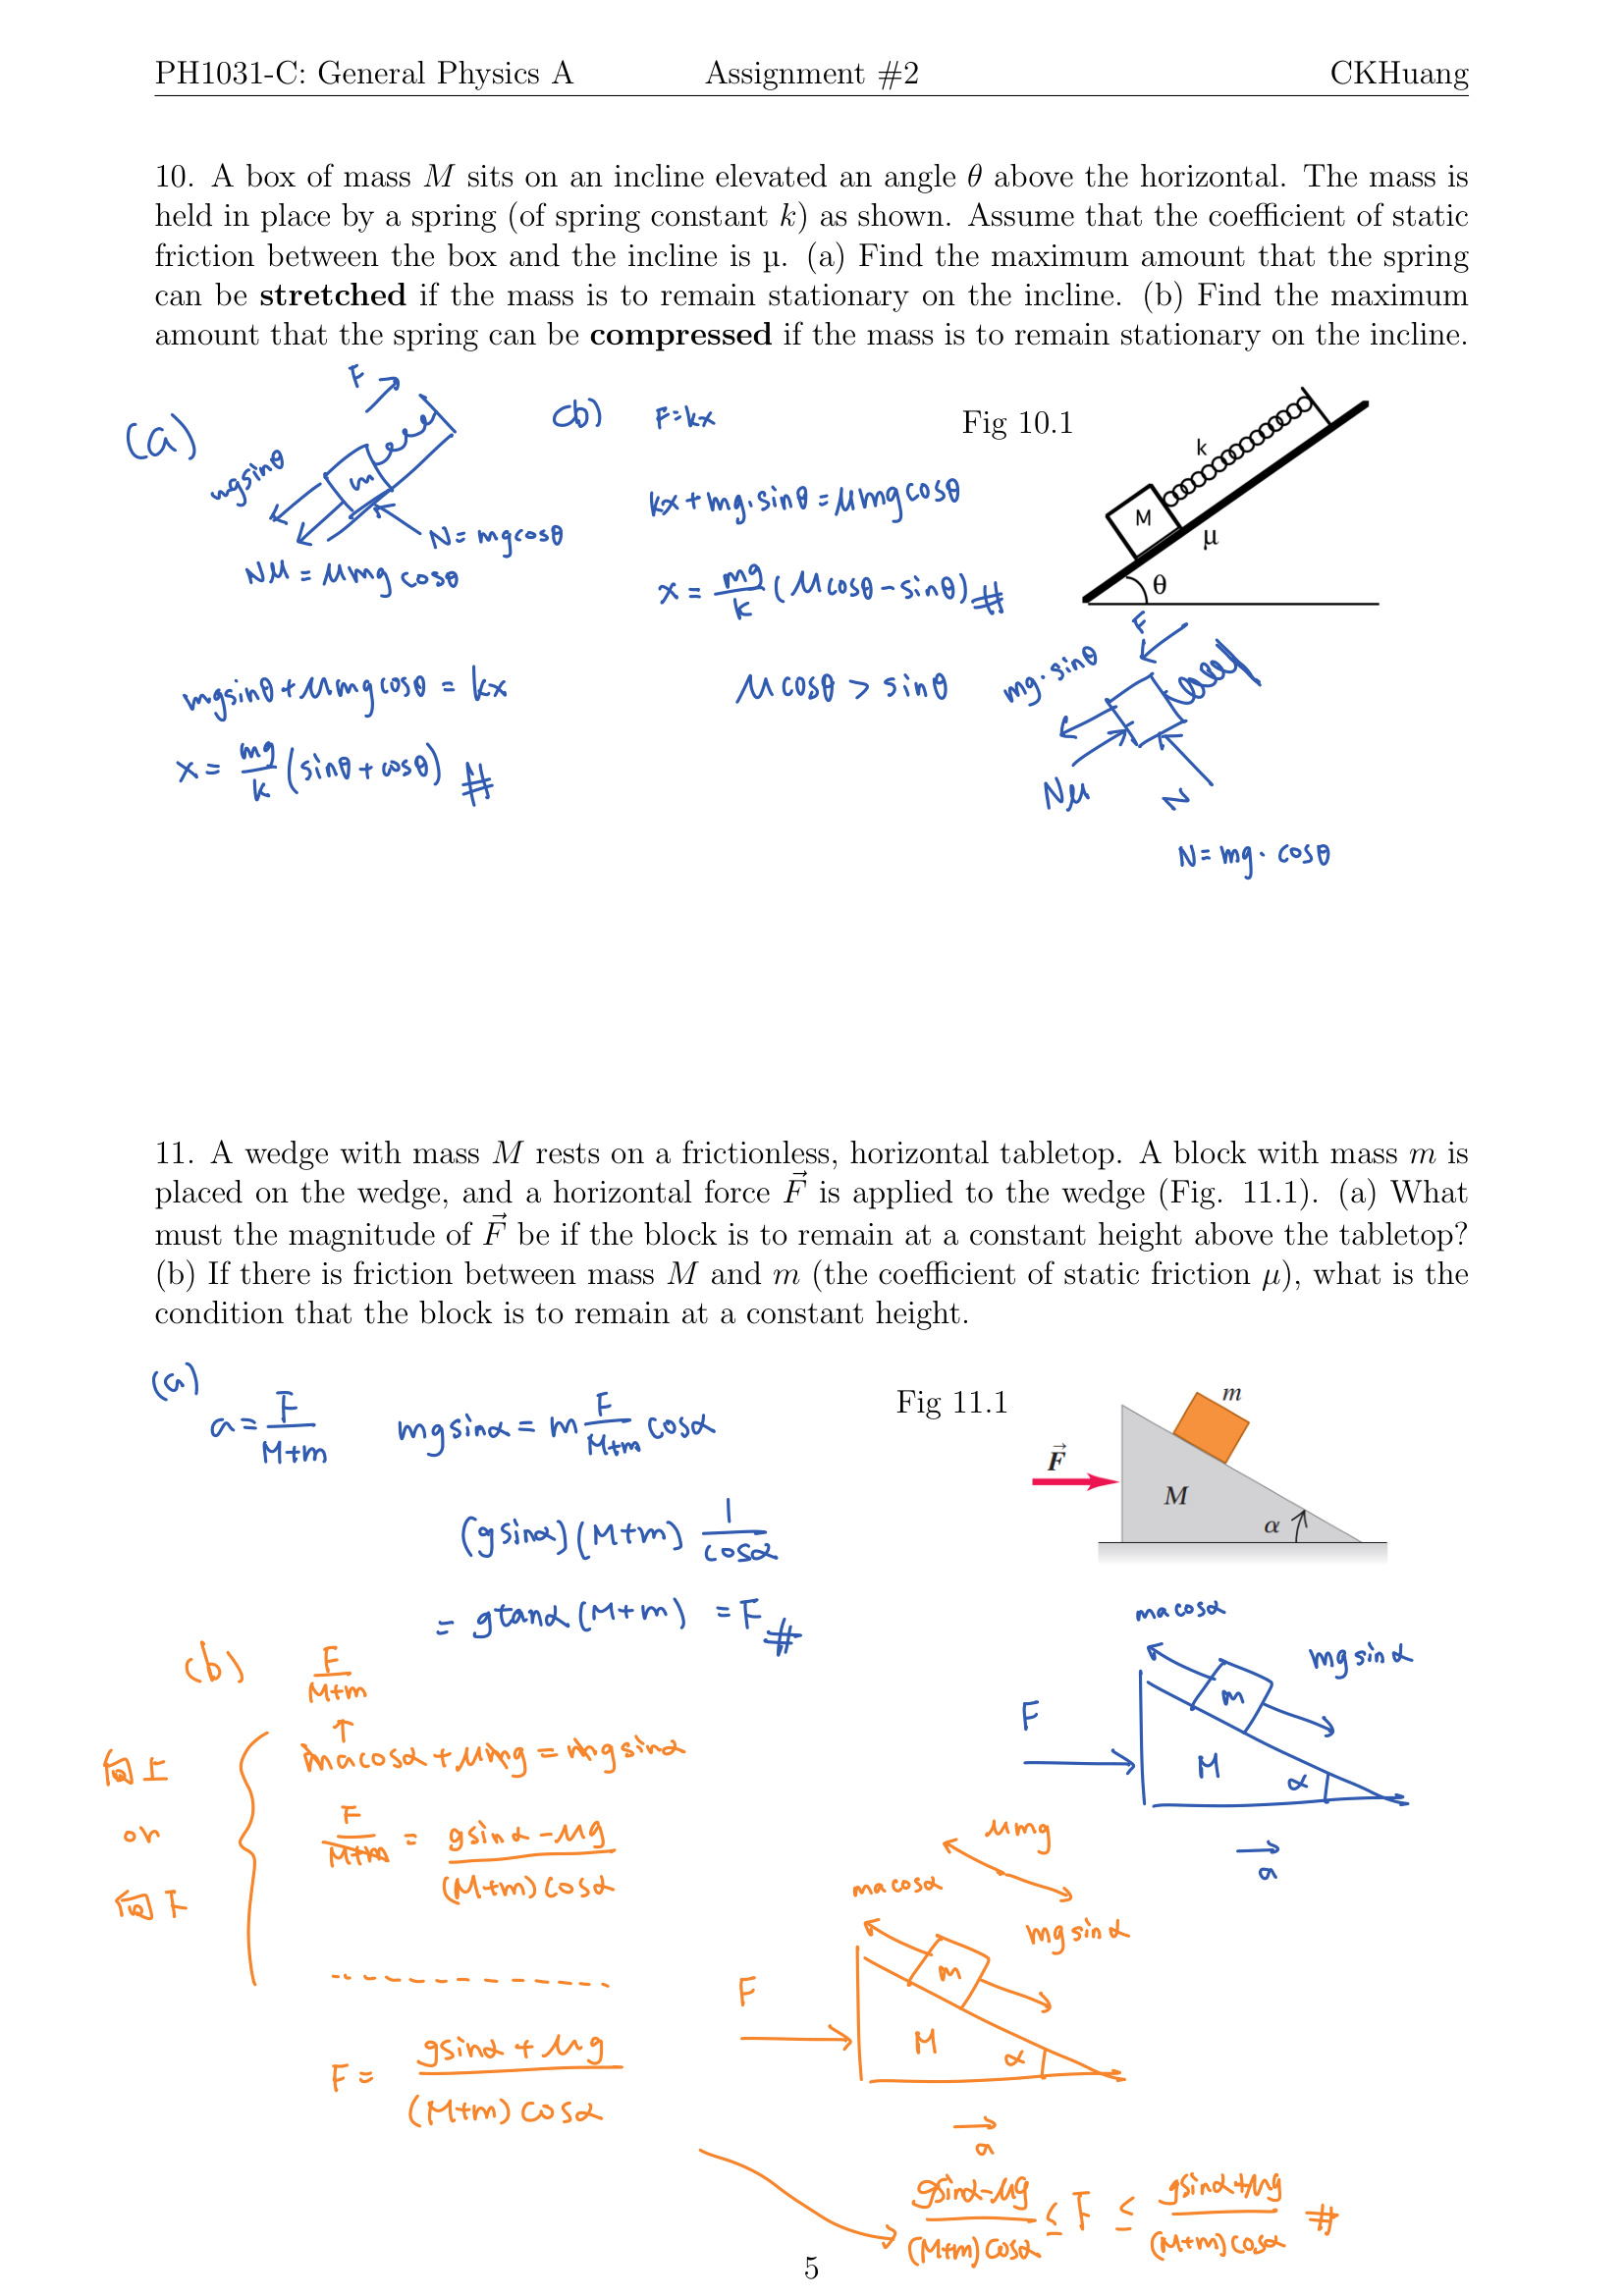 PH1031-C: General Physics A Assignment #2 CKHuang
10. A box of mass M sits on an incline elevated an angle θ above the horizontal. The mass is
held in place by a spring (of spring constant k) as shown. Assume that the coefficient of static
friction between the box and the incline is µ. (a) Find the maximum amount that the spring
can be stretched if the mass is to remain stationary on the incline. (b) Find the maximum
amount that the spring can be compressed if the mass is to remain stationary on the incline.
(a)
F
mgsinθ
m
N= mgcosθ
Nμ = μmg cosθ
mgsinθ+μmgcosθ = kx
x = mg/k (sinθ+cosθ) #
(b) F=kx
kx+mg·sinθ=μmgcosθ
x = mg/k (μcosθ-sinθ) #
μcosθ > sinθ
Fig 10.1
k
M
μ
θ
F
mg·sinθ
Nμ
N
N=mg·cosθ
11. A wedge with mass M rests on a frictionless, horizontal tabletop. A block with mass m is
placed on the wedge, and a horizontal force F⃗ is applied to the wedge (Fig. 11.1). (a) What
must the magnitude of F⃗ be if the block is to remain at a constant height above the tabletop?
(b) If there is friction between mass M and m (the coefficient of static friction µ), what is the
condition that the block is to remain at a constant height.
(a)
a = F/(M+m) mgsinα = m F/(M+m) cosα
(gsinα)(M+m) 1/cosα
= gtanα(M+m) = F #
Fig 11.1
m
F⃗
M
α
macosα
mgsinα
m
F
M
α
a
(b) F/(M+m)
↑
macosα+μmg = mgsinα
向上
or
向下
F/(M+m) = (gsinα-μg)/((M+m)cosα)
F = (gsinα+μg)/((M+m)cosα)
μmg
macosα
mgsinα
m
F
M
α
a
(gsinα-μg)/((M+m)cosα) ≤ F ≤ (gsinα+μg)/((M+m)cosα) #
5